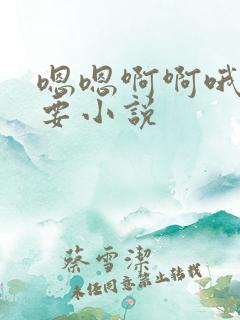 嗯嗯啊啊哦
要小说
蔡雪潔
未经同意禁止转载